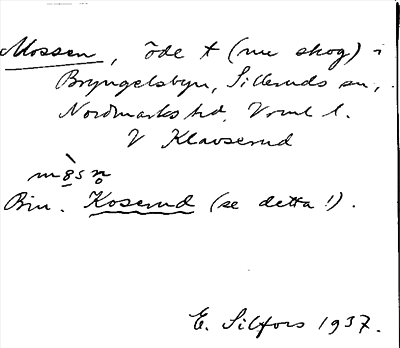 Mossen, öde t (nu skog) i
Bryngelsbyn, Silleruds sn,
Nordmarks hd, Vrml l.
V Klavserud
mòsn
Bin. Koserud (se detta!).
E. Silfors 1937.